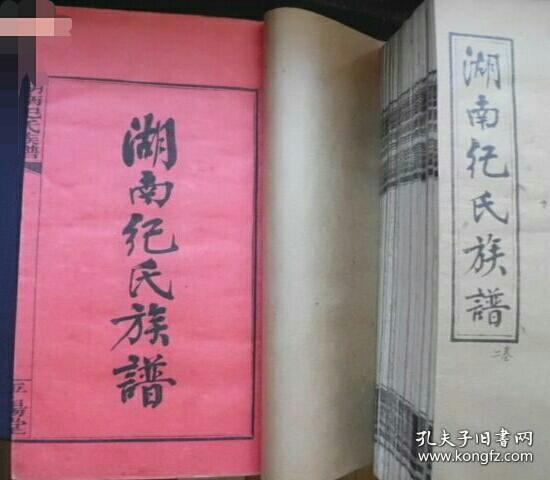 湖南纪氏族譜
湖南纪氏族譜
二卷
湖南纪氏族譜
平陽堂
孔夫子旧书网
kongfz.com